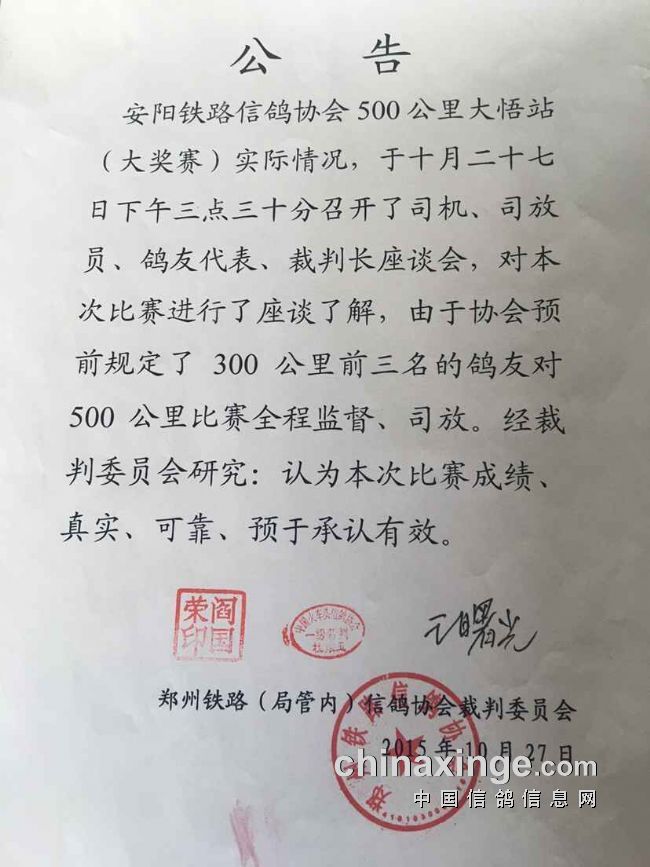 公 告
安阳铁路信鸽协会500公里大悟站
（大奖赛）实际情况，于十月二十七
日下午三点三十分召开了司机、司放
员、鸽友代表、裁判长座谈会，对本
次比赛进行了座谈了解，由于协会预
前规定了 300 公里前三名的鸽友对
500 公里比赛全程监督、司放。经裁
判委员会研究：认为本次比赛成绩、
真实、可靠、预于承认有效。
阎国
荣印
一级裁判
王曙光
郑州铁路（局管内）信鸽协会裁判委员会
2015 年 10 月 27 日
郑州铁路信鸽协会
chinaxinge.com
中国信鸽信息网